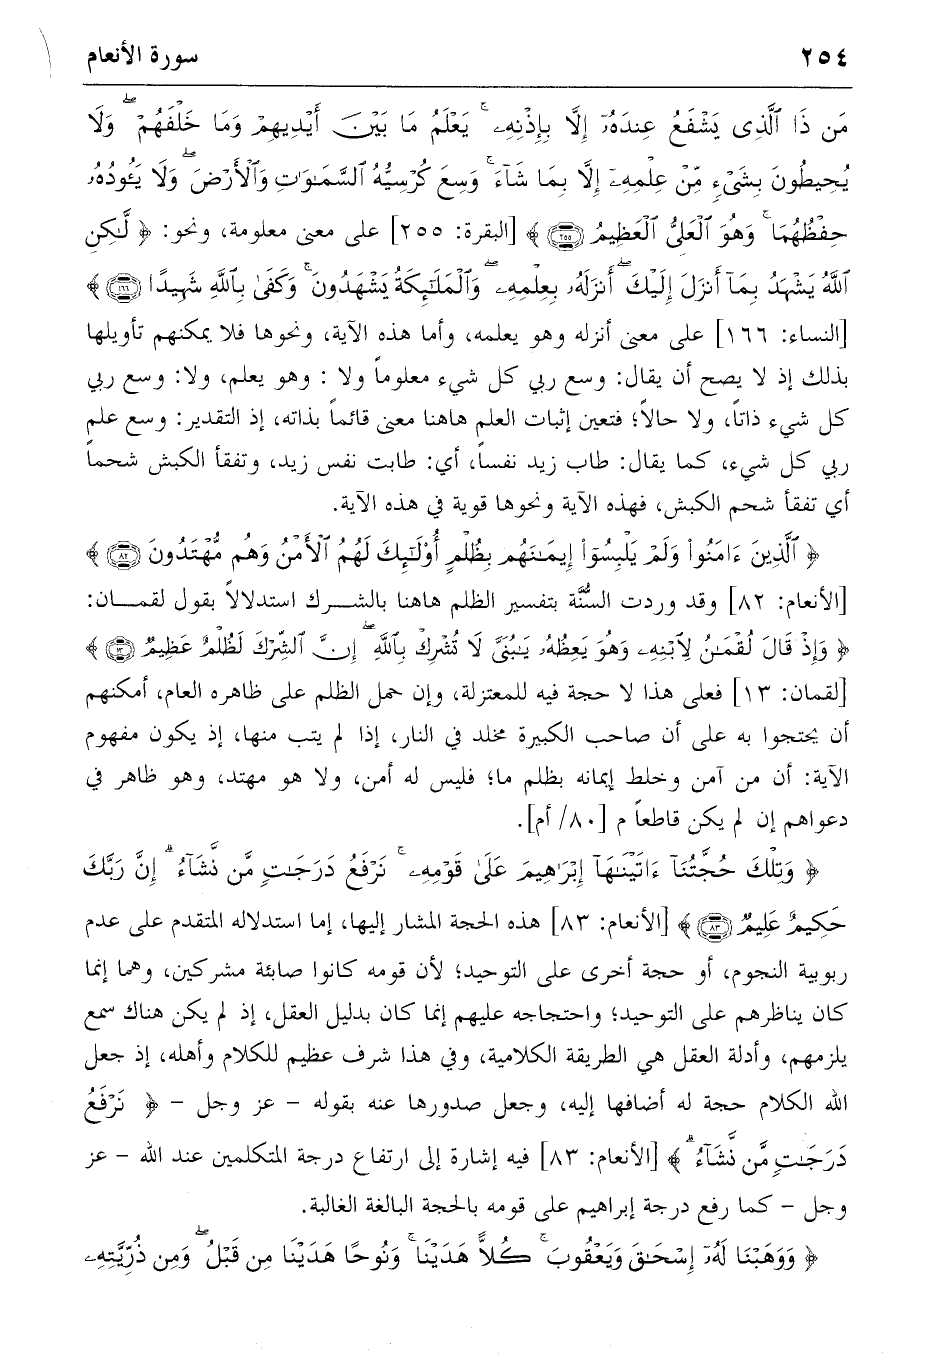 ٢٥٤ سورة الأنعام
مَن ذَا ٱلَّذِى يَشْفَعُ عِندَهُۥٓ إِلَّا بِإِذْنِهِۦ ۚ يَعْلَمُ مَا بَيْنَ أَيْدِيهِمْ وَمَا خَلْفَهُمْ ۖ وَلَا
يُحِيطُونَ بِشَىْءٍ مِّنْ عِلْمِهِۦٓ إِلَّا بِمَا شَآءَ ۚ وَسِعَ كُرْسِيُّهُ ٱلسَّمَـٰوَٰتِ وَٱلْأَرْضَ ۖ وَلَا يَـُٔودُهُۥ
حِفْظُهُمَا ۚ وَهُوَ ٱلْعَلِىُّ ٱلْعَظِيمُ ﴿٢٥٥﴾ ﴾ [البقرة: ٢٥٥] على معنى معلومة، ونحو: ﴿ لَّـٰكِنِ
ٱللَّهُ يَشْهَدُ بِمَآ أَنزَلَ إِلَيْكَ ۖ أَنزَلَهُۥ بِعِلْمِهِۦ ۖ وَٱلْمَلَـٰٓئِكَةُ يَشْهَدُونَ ۚ وَكَفَىٰ بِٱللَّهِ شَهِيدًا ﴿١٦٦﴾ ﴾
[النساء: ١٦٦] على معنى أنزله وهو يعلمه، وأما هذه الآية، ونحوها فلا يمكنهم تأويلها
بذلك إذ لا يصح أن يقال: وسع ربي كل شيء معلوماً ولا : وهو يعلم، ولا: وسع ربي
كل شيء ذاتاً، ولا حالاً؛ فتعين إثبات العلم هاهنا معنى قائماً بذاته، إذ التقدير: وسع علم
ربي كل شيء، كما يقال: طاب زيد نفساً، أي: طابت نفس زيد، وتفقأ الكبش شحماً
أي تفقأ شحم الكبش، فهذه الآية ونحوها قوية في هذه الآية.
﴿ ٱلَّذِينَ ءَامَنُوا۟ وَلَمْ يَلْبِسُوٓا۟ إِيمَـٰنَهُم بِظُلْمٍ أُو۟لَـٰٓئِكَ لَهُمُ ٱلْأَمْنُ وَهُم مُّهْتَدُونَ ﴿٨٢﴾ ﴾
[الأنعام: ٨٢] وقد وردت السُّنَّة بتفسير الظلم هاهنا بالشـرك استدلالاً بقول لقمـان:
﴿ وَإِذْ قَالَ لُقْمَـٰنُ لِٱبْنِهِۦ وَهُوَ يَعِظُهُۥ يَـٰبُنَىَّ لَا تُشْرِكْ بِٱللَّهِ ۖ إِنَّ ٱلشِّرْكَ لَظُلْمٌ عَظِيمٌ ﴿١٣﴾ ﴾
[لقمان: ١٣] فعلى هذا لا حجة فيه للمعتزلة، وإن حمل الظلم على ظاهره العام، أمكنهم
أن يحتجوا به على أن صاحب الكبيرة مخلد في النار، إذا لم يتب منها، إذ يكون مفهوم
الآية: أن من آمن وخلط إيمانه بظلم ما؛ فليس له أمن، ولا هو مهتد، وهو ظاهر في
دعواهم إن لم يكن قاطعاً م [٨٠/ أم].
﴿ وَتِلْكَ حُجَّتُنَآ ءَاتَيْنَـٰهَآ إِبْرَٰهِيمَ عَلَىٰ قَوْمِهِۦ ۚ نَرْفَعُ دَرَجَـٰتٍ مَّن نَّشَآءُ ۗ إِنَّ رَبَّكَ
حَكِيمٌ عَلِيمٌ ﴿٨٣﴾ ﴾ [الأنعام: ٨٣] هذه الحجة المشار إليها، إما استدلاله المتقدم على عدم
ربوبية النجوم، أو حجة أخرى على التوحيد؛ لأن قومه كانوا صابئة مشركين، وهما إنما
كان يناظرهم على التوحيد؛ واحتجاجه عليهم إنما كان بدليل العقل، إذ لم يكن هناك سمع
يلزمهم، وأدلة العقل هي الطريقة الكلامية، وفي هذا شرف عظيم للكلام وأهله، إذ جعل
الله الكلام حجة له أضافها إليه، وجعل صدورها عنه بقوله - عز وجل - ﴿ نَرْفَعُ
دَرَجَـٰتٍ مَّن نَّشَآءُ ۗ ﴾ [الأنعام: ٨٣] فيه إشارة إلى ارتفاع درجة المتكلمين عند الله - عز
وجل - كما رفع درجة إبراهيم على قومه بالحجة البالغة الغالبة.
﴿ وَوَهَبْنَا لَهُۥٓ إِسْحَـٰقَ وَيَعْقُوبَ ۚ كُلًّا هَدَيْنَا ۚ وَنُوحًا هَدَيْنَا مِن قَبْلُ ۖ وَمِن ذُرِّيَّتِهِۦ